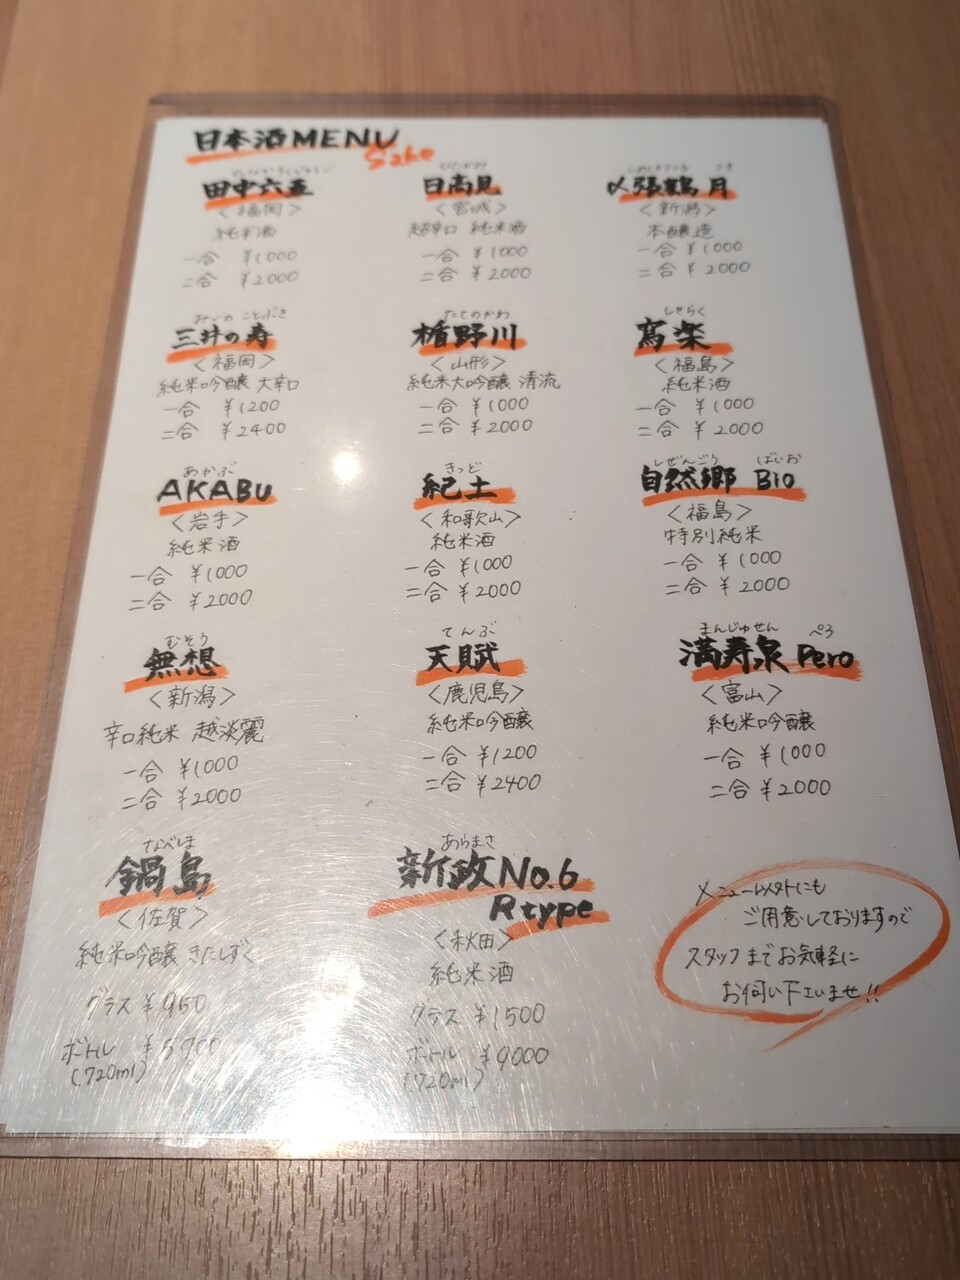 日本酒MENU
Sake
たなかろくじゅうご
田中六五
〈福岡〉
純米酒
一合 ¥1000
二合 ¥2000
ひたかみ
日高見
〈宮城〉
超辛口 純米酒
一合 ¥1000
二合 ¥2000
しめはりつる つき
〆張鶴 月
〈新潟〉
本醸造
一合 ¥1000
二合 ¥2000
みいの ことぶき
三井の寿
〈福岡〉
純米吟醸 大辛口
一合 ¥1200
二合 ¥2400
たてのかわ
楯野川
〈山形〉
純米大吟醸 清流
一合 ¥1000
二合 ¥2000
しゃらく
寫楽
〈福島〉
純米酒
一合 ¥1000
二合 ¥2000
あかぶ
AKABU
〈岩手〉
純米酒
一合 ¥1000
二合 ¥2000
きっど
紀土
〈和歌山〉
純米酒
一合 ¥1000
二合 ¥2000
しぜんごう ばいお
自然郷 Bio
〈福島〉
特別純米
一合 ¥1000
二合 ¥2000
むそう
無想
〈新潟〉
辛口純米 越淡麗
一合 ¥1000
二合 ¥2000
てんぶ
天賦
〈鹿児島〉
純米吟醸
一合 ¥1200
二合 ¥2400
まんじゅせん ぺろ
満寿泉 Pero
〈富山〉
純米吟醸
一合 ¥1000
二合 ¥2000
なべしま
鍋島
〈佐賀〉
純米吟醸 きたしずく
グラス ¥950
ボトル ¥5900
(720ml)
あらまさ
新政No.6
Rtype
〈秋田〉
純米酒
グラス ¥1500
ボトル ¥9000
(720ml)
メニュー以外にも
ご用意しておりますので
スタッフまでお気軽に
お伺い下さいませ!!